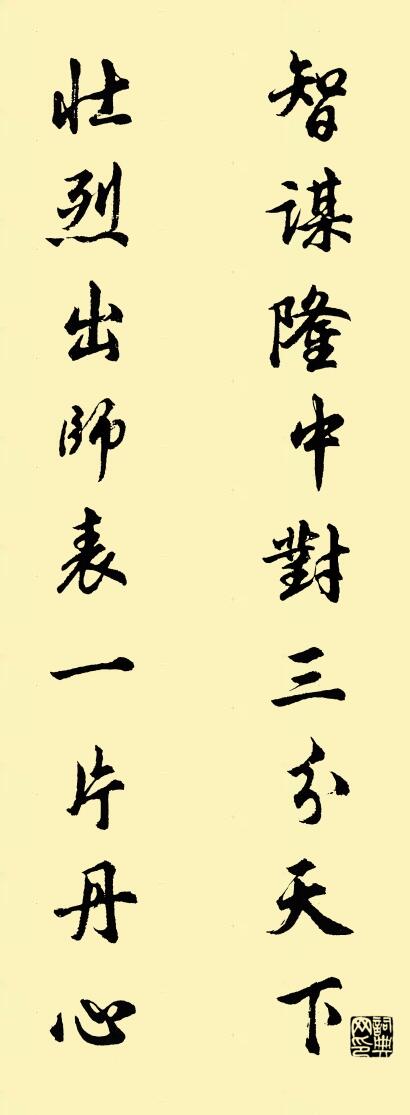 智謀隆中對三分天下
壯烈出師表一片丹心
詞典
网印